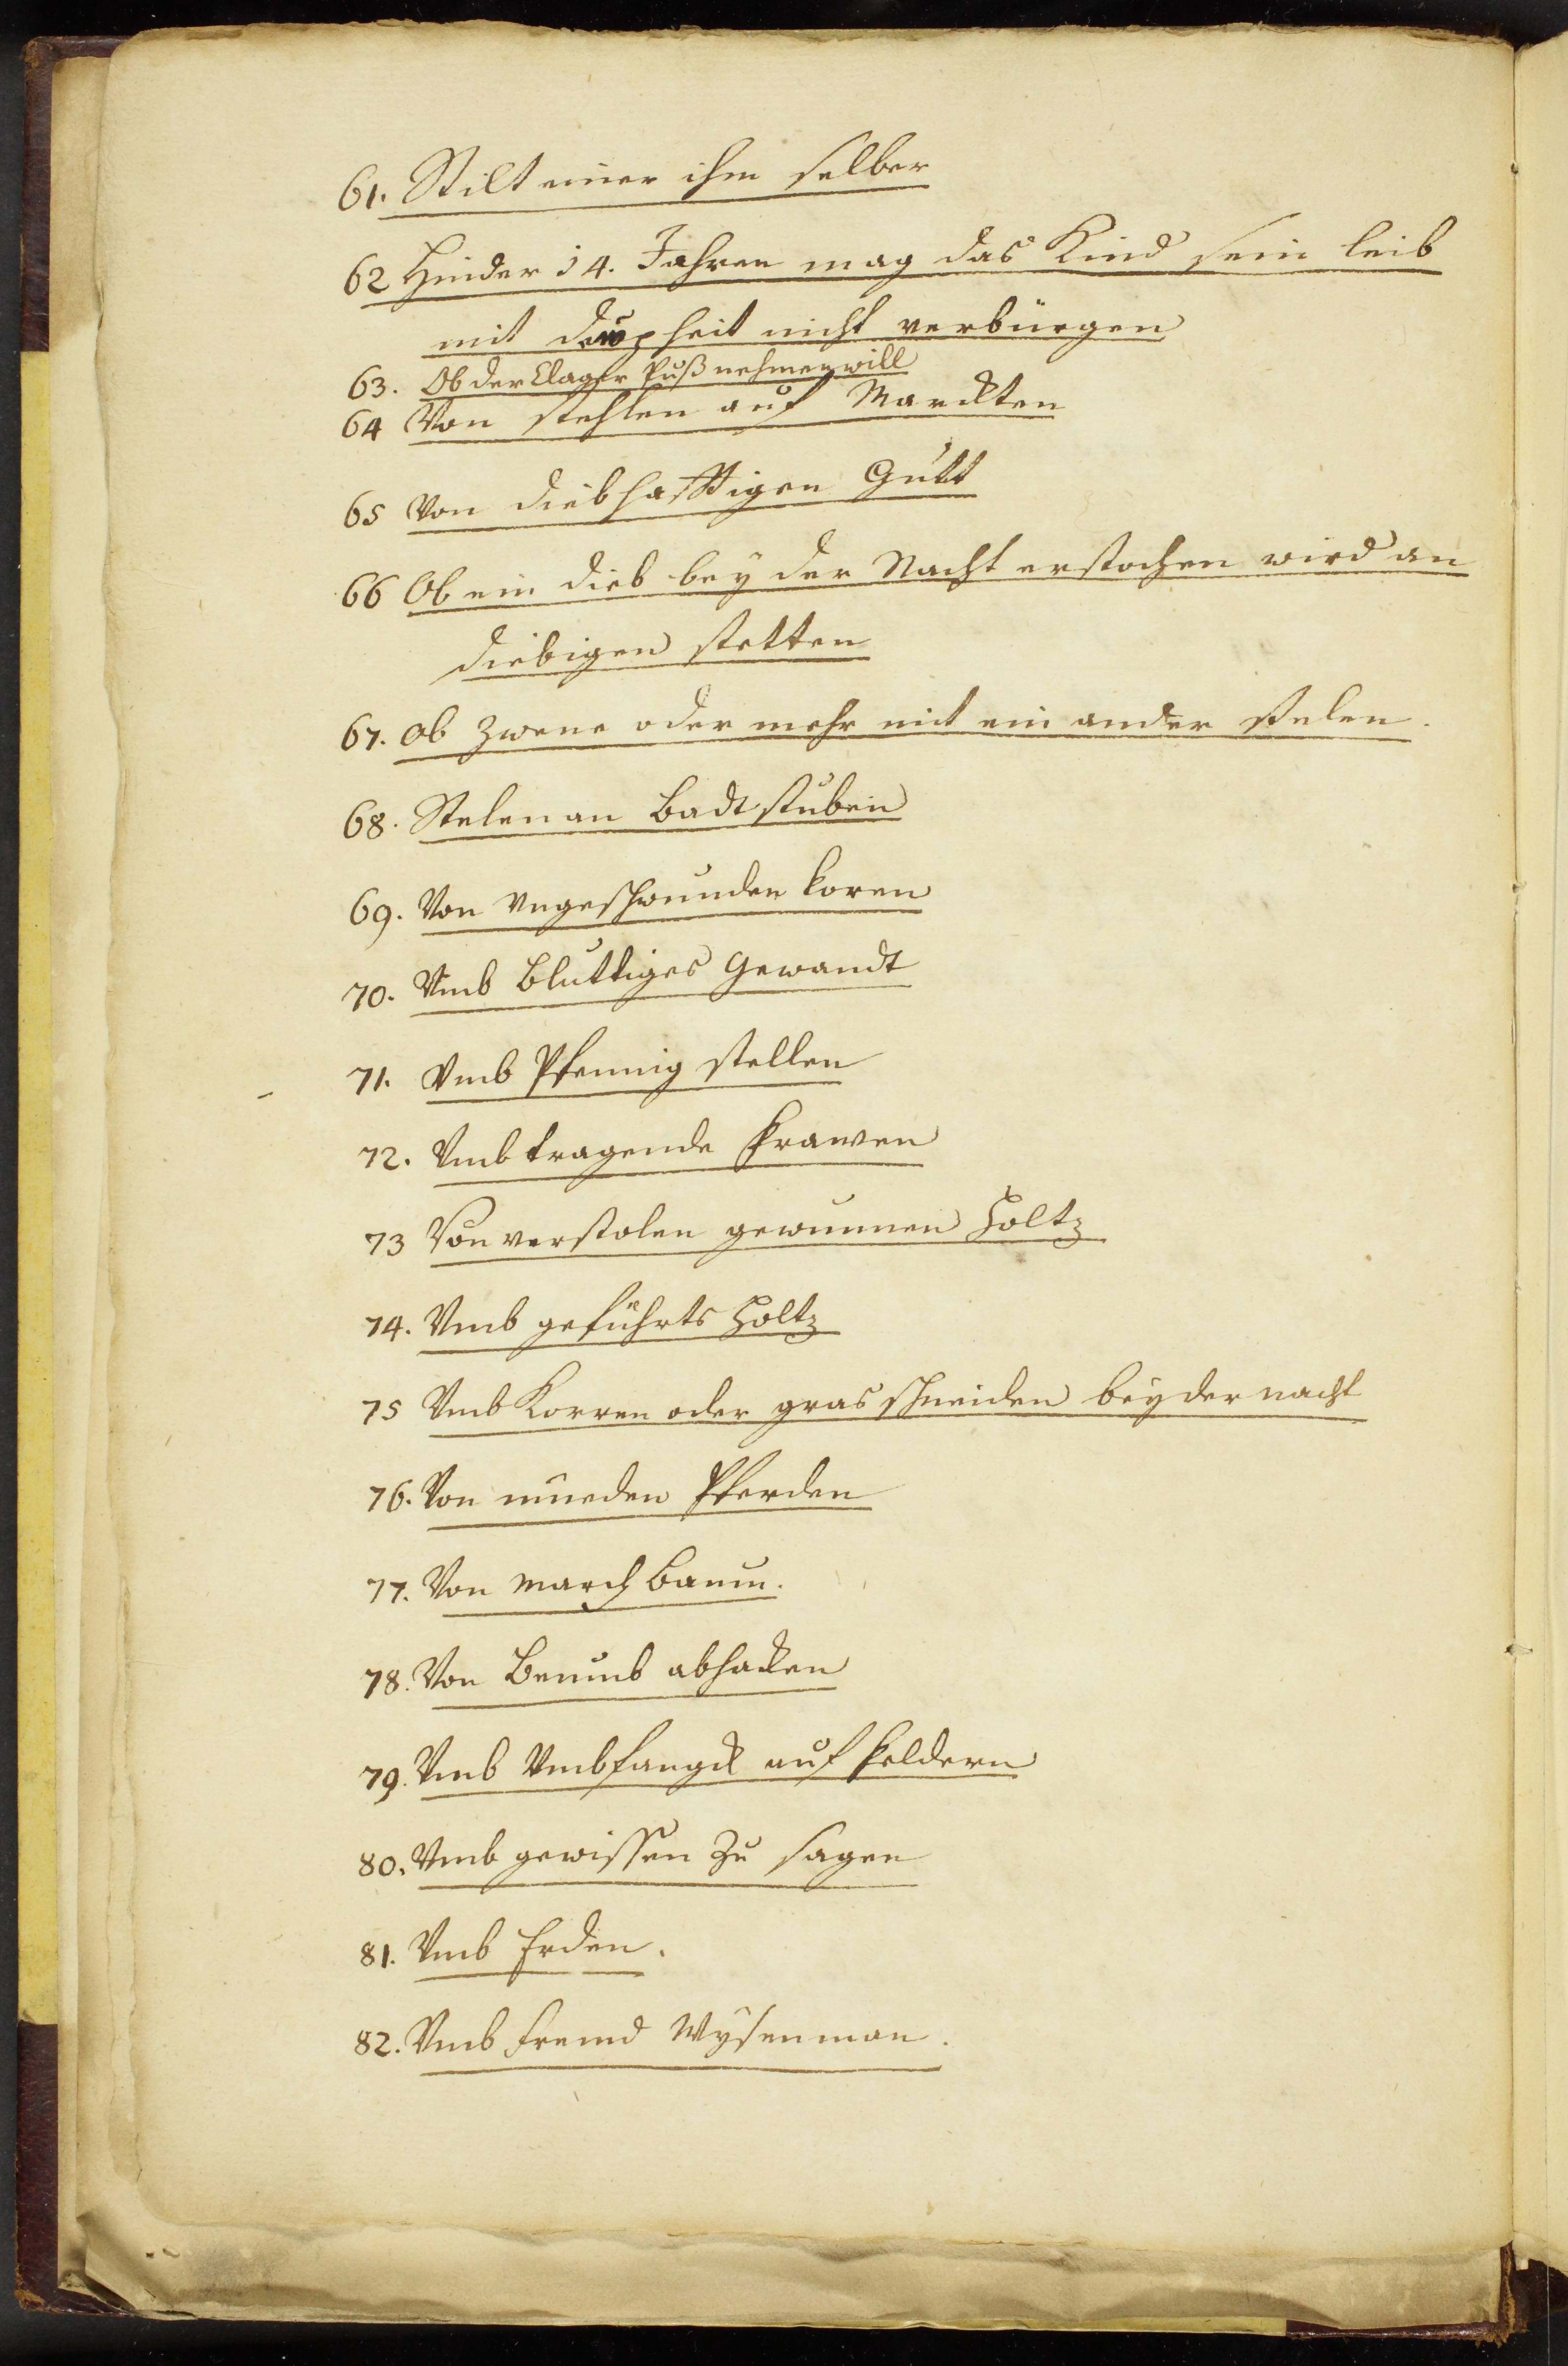 61. Stilt einer ihm selber
62 Hinder 14. Jahren mag das Kind sein leib
mit deupheit nicht verbürgen
63. Ob der Clager Puß nehmen will
64 Von stehlen auf Marckten
65 Von diebhafftigen Gutt
66 Ob ein dieb bey der Nacht erstochen wird an
diebigen stetten
67. Ob Zwene oder mehr mit ein ander stelen.
68. Stelen an Badtstuben
69. Von Vngeschwunden koren
70. Vmb Bluttiges Gewandt
71. Vmb Pfennig stellen
72. Vmb tragende frawen
73 Von verstolen gewunnen Holtz
74. Vmb geführts Holtz
75 Vmb Korren oder gras schneiden bey der nacht
76. Von mueden Pferden
77. Von March Baum.
78. Von Beumb abhacken
79. Vmb Vmbfangk auf feldern
80. Vmb gewissen Zu sagen
81. Vmb Erden.
82. Vmb fremd Wysenman.